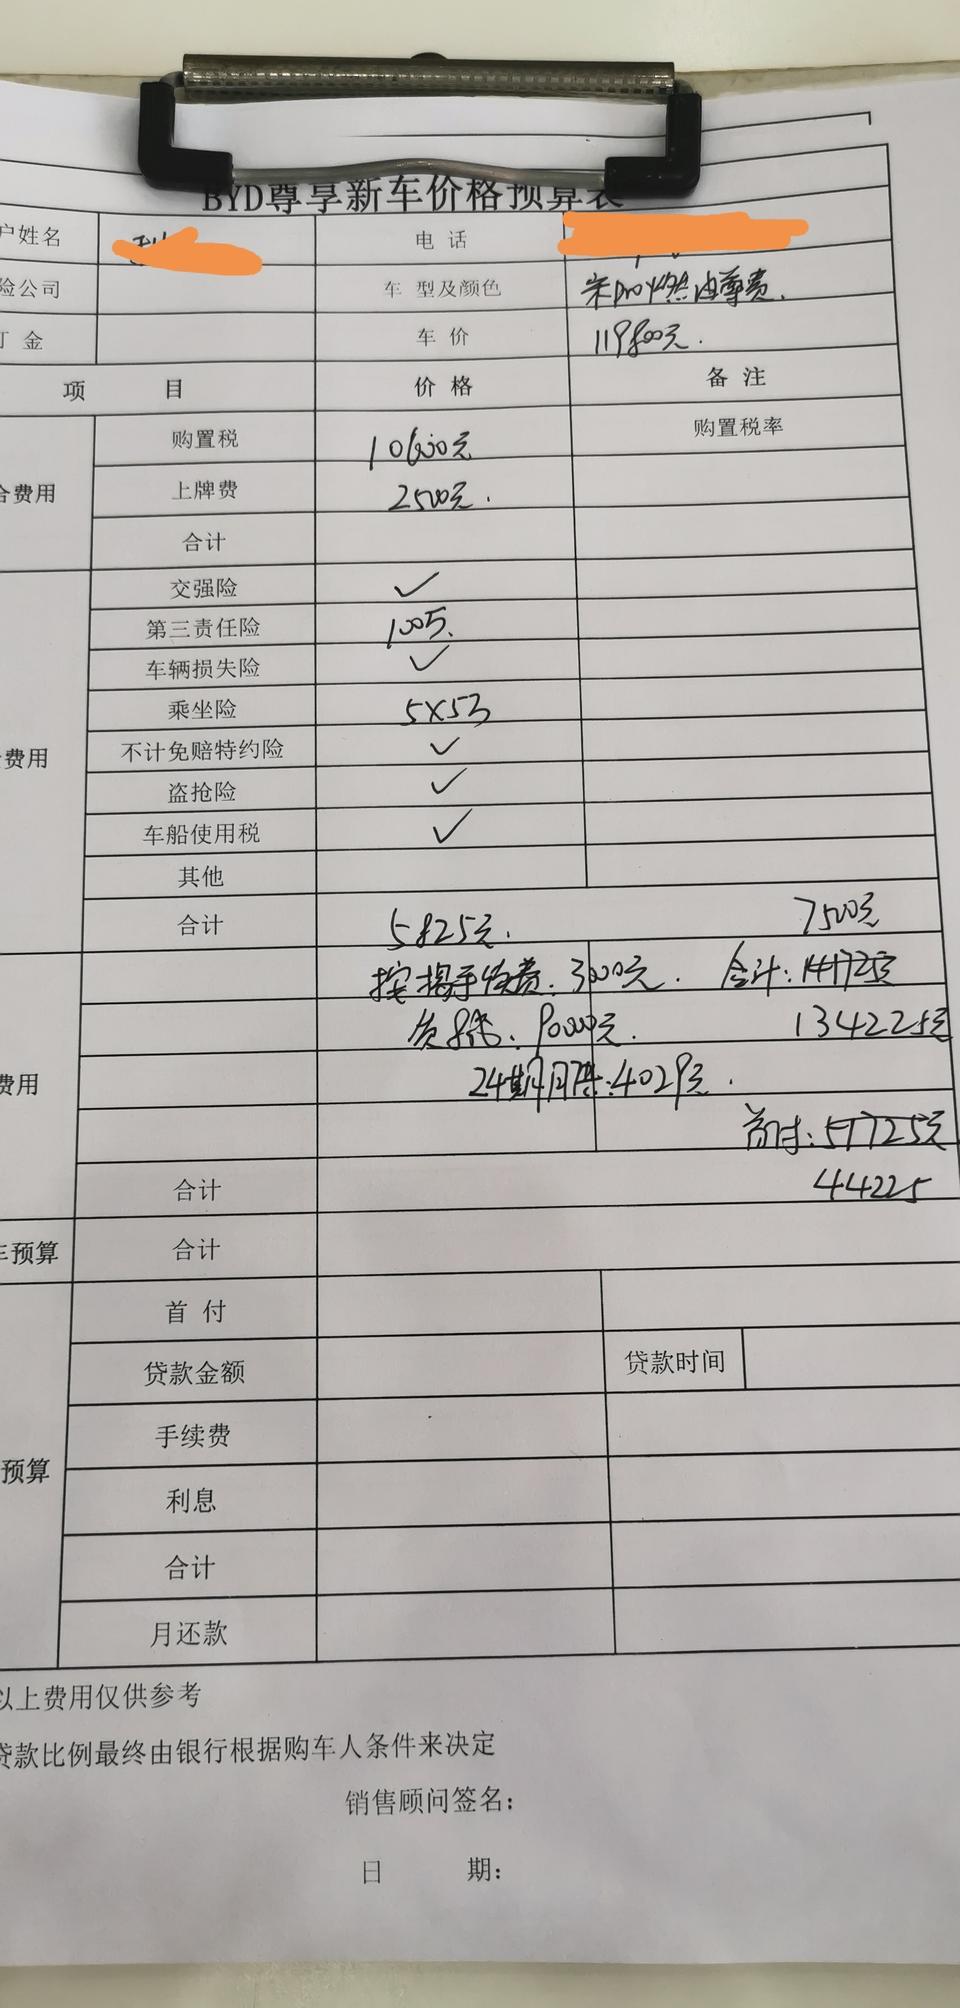 BYD尊享新车价格预算表
户姓名 电 话
险公司 车 型及颜色 宋pro燃油尊贵.
丁 金 车 价 119800元.
项 目 价 格 备 注
合费用 购置税 10600元 购置税率
上牌费 2500元.
合计
费用 交强险 ✓
第三责任险 100万.
车辆损失险 ✓
乘坐险 5×5万
不计免赔特约险 ✓
盗抢险 ✓
车船使用税 ✓
其他
合计 5825元. 7500元
按揭手续费:3000元. 合计:141725元
费用 90000元. 134225元
24期月供:4029元.
首付:51725元
合计 44225
车预算 合计
预算 首 付
贷款金额 贷款时间
手续费
利息
合计
月还款
以上费用仅供参考
贷款比例最终由银行根据购车人条件来决定
销售顾问签名:
日 期: